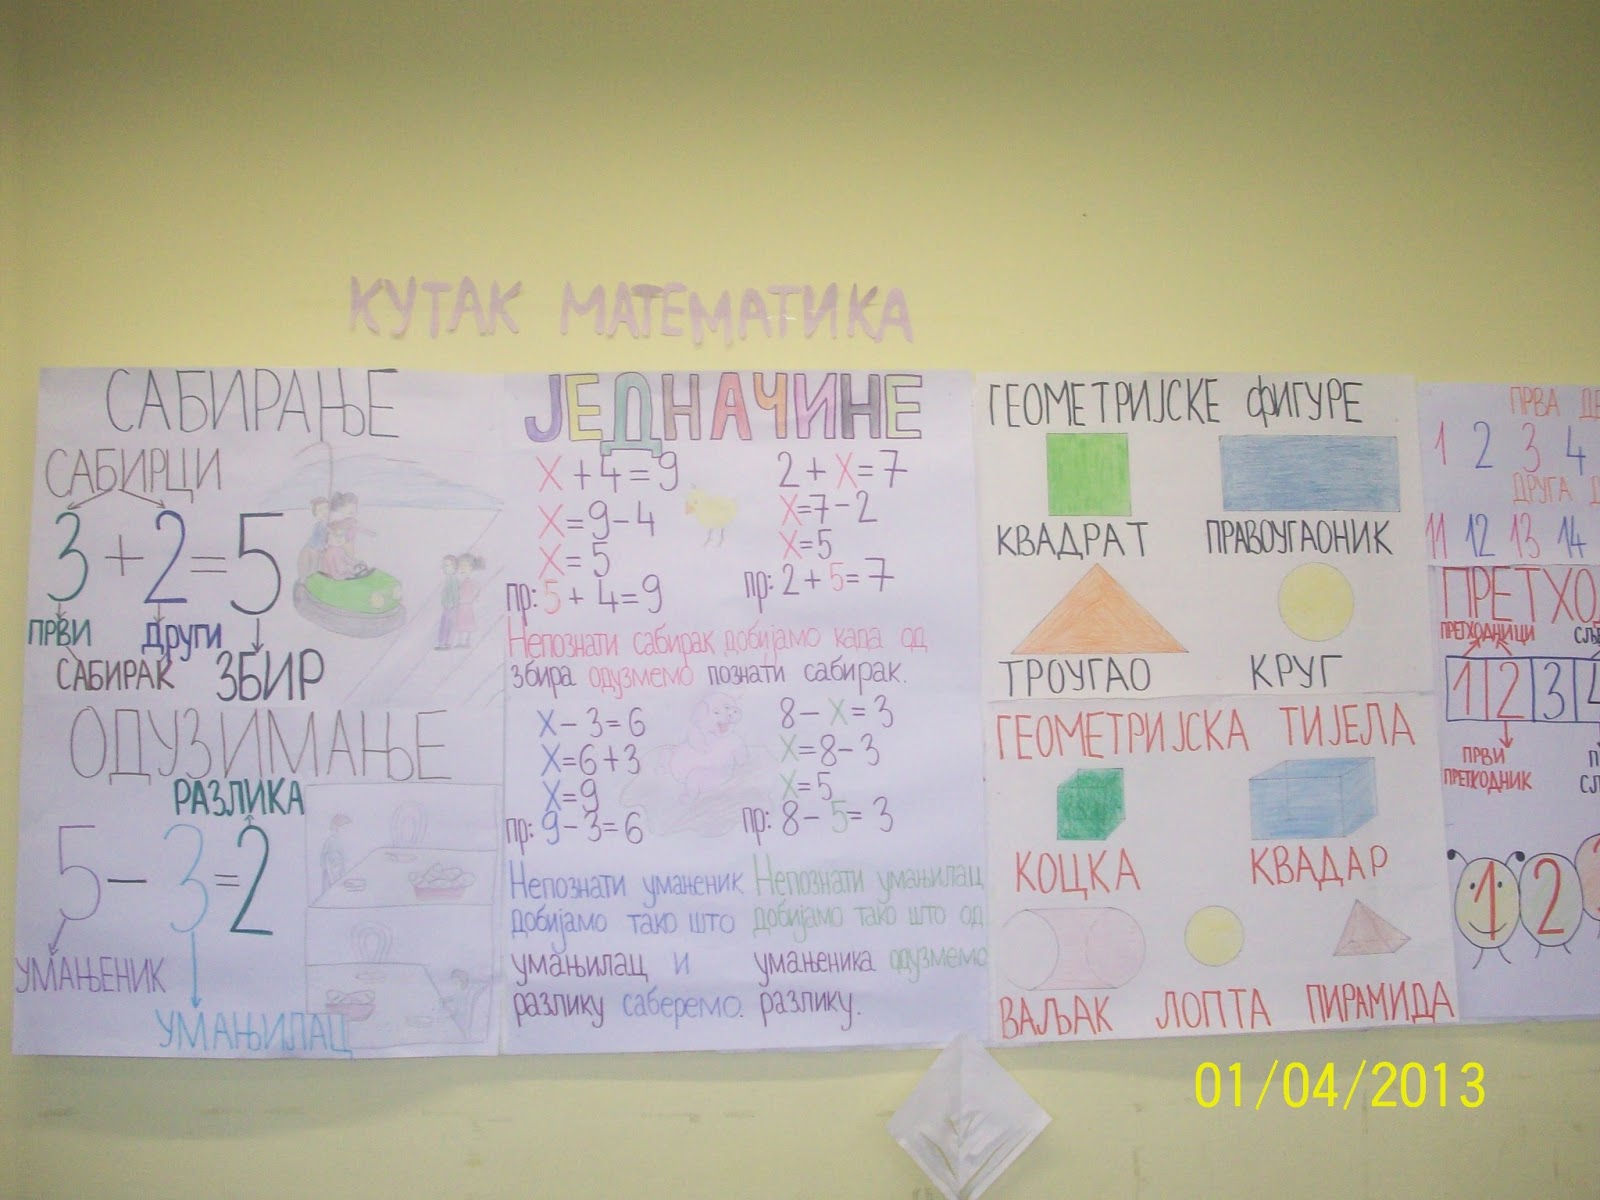 КУТАК МАТЕМАТИКА
САБИРАЊЕ
САБИРЦИ
3+2=5
ПРВИ ДРУГИ
САБИРАК ЗБИР
ОДУЗИМАЊЕ
РАЗЛИКА
5-3=2
УМАЊЕНИК
УМАЊИЛАЦ
ЈЕДНАЧИНЕ
X+4=9
X=9-4
X=5
пр: 5+4=9
2+X=7
X=7-2
X=5
пр: 2+5=7
Непознати сабирак добијамо када од
збира одузмемо познати сабирак.
X-3=6
X=6+3
X=9
пр: 9-3=6
8-X=3
X=8-3
X=5
пр: 8-5=3
Непознати умањеник
добијамо тако што
умањилац и
разлику саберемо.
Непознати умањилац
добијамо тако што од
умањеника одузмемо
разлику.
ГЕОМЕТРИЈСКЕ ФИГУРЕ
КВАДРАТ ПРАВОУГАОНИК
ТРОУГАО КРУГ
ГЕОМЕТРИЈСКА ТИЈЕЛА
КОЦКА КВАДАР
ВАЉАК ЛОПТА ПИРАМИДА
ПРВА
1 2 3 4
ДРУГА
11 12 13 14
ПРЕТХО
ПРЕТХОДНИЦИ
1 2 3 4
ПРВИ
ПРЕТХОДНИК
1 2
01/04/2013